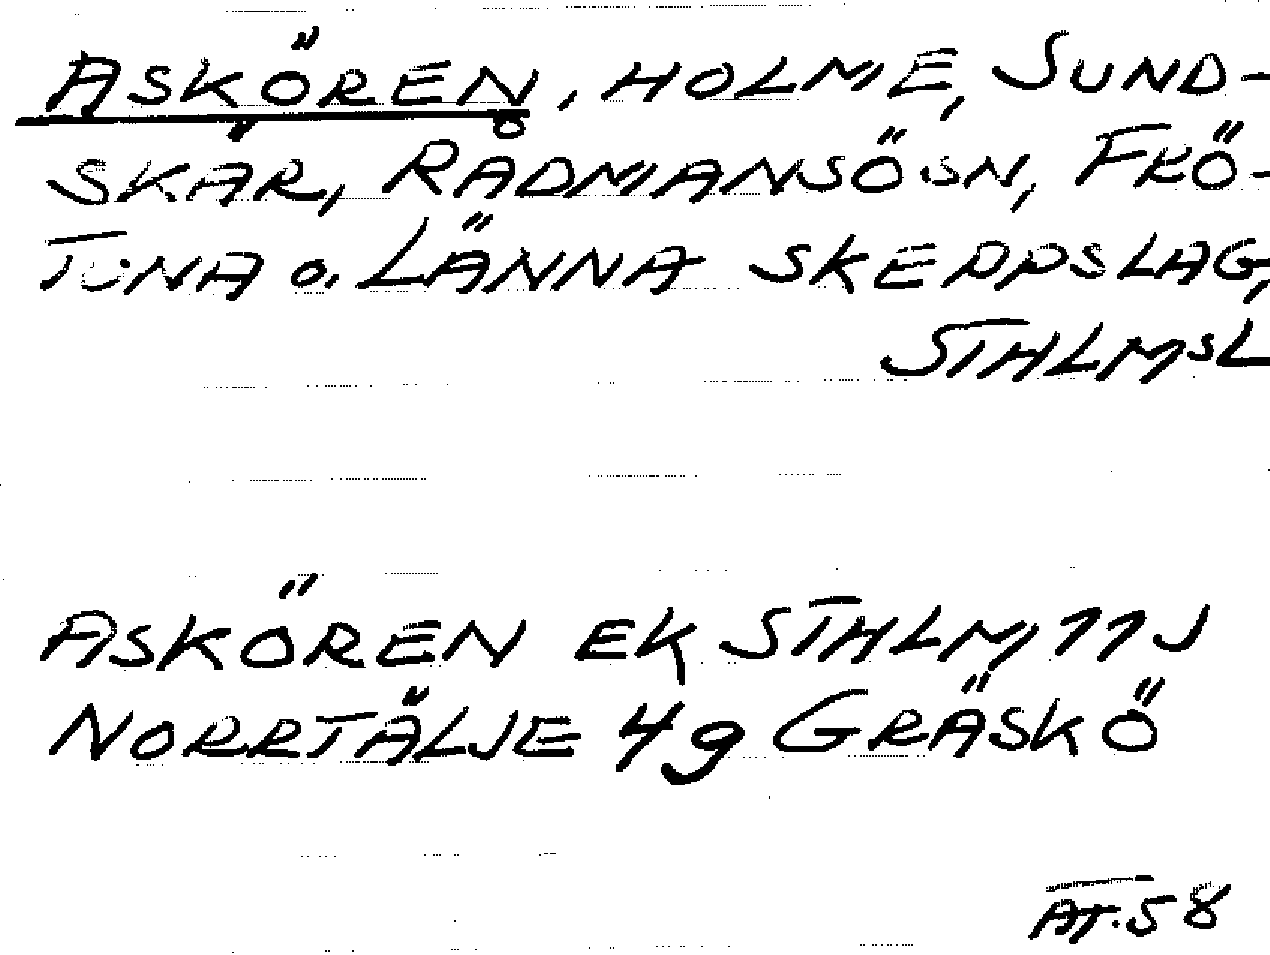 ASKÖREN, HOLME, SUND-
SKÄR, RÅDMANSÖ SN, FRÖ-
TUNA o. LÄNNA SKEPPSLAG,
STHLMSL
ASKÖREN EK STHLM 11J
NORRTÄLJE 4g GRÄSKÖ
AT. 58